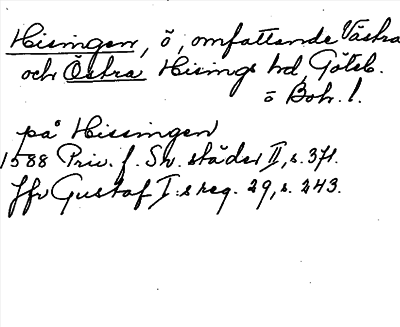 Hisingen, ö, omfattande Västra
och Östra Hisings hd, Göteb.
o Boh. l.
på Hissingen
1588 Priv. f. Sv. städer II, s. 371.
Jfr Gustaf I:s reg. 29, s. 243.